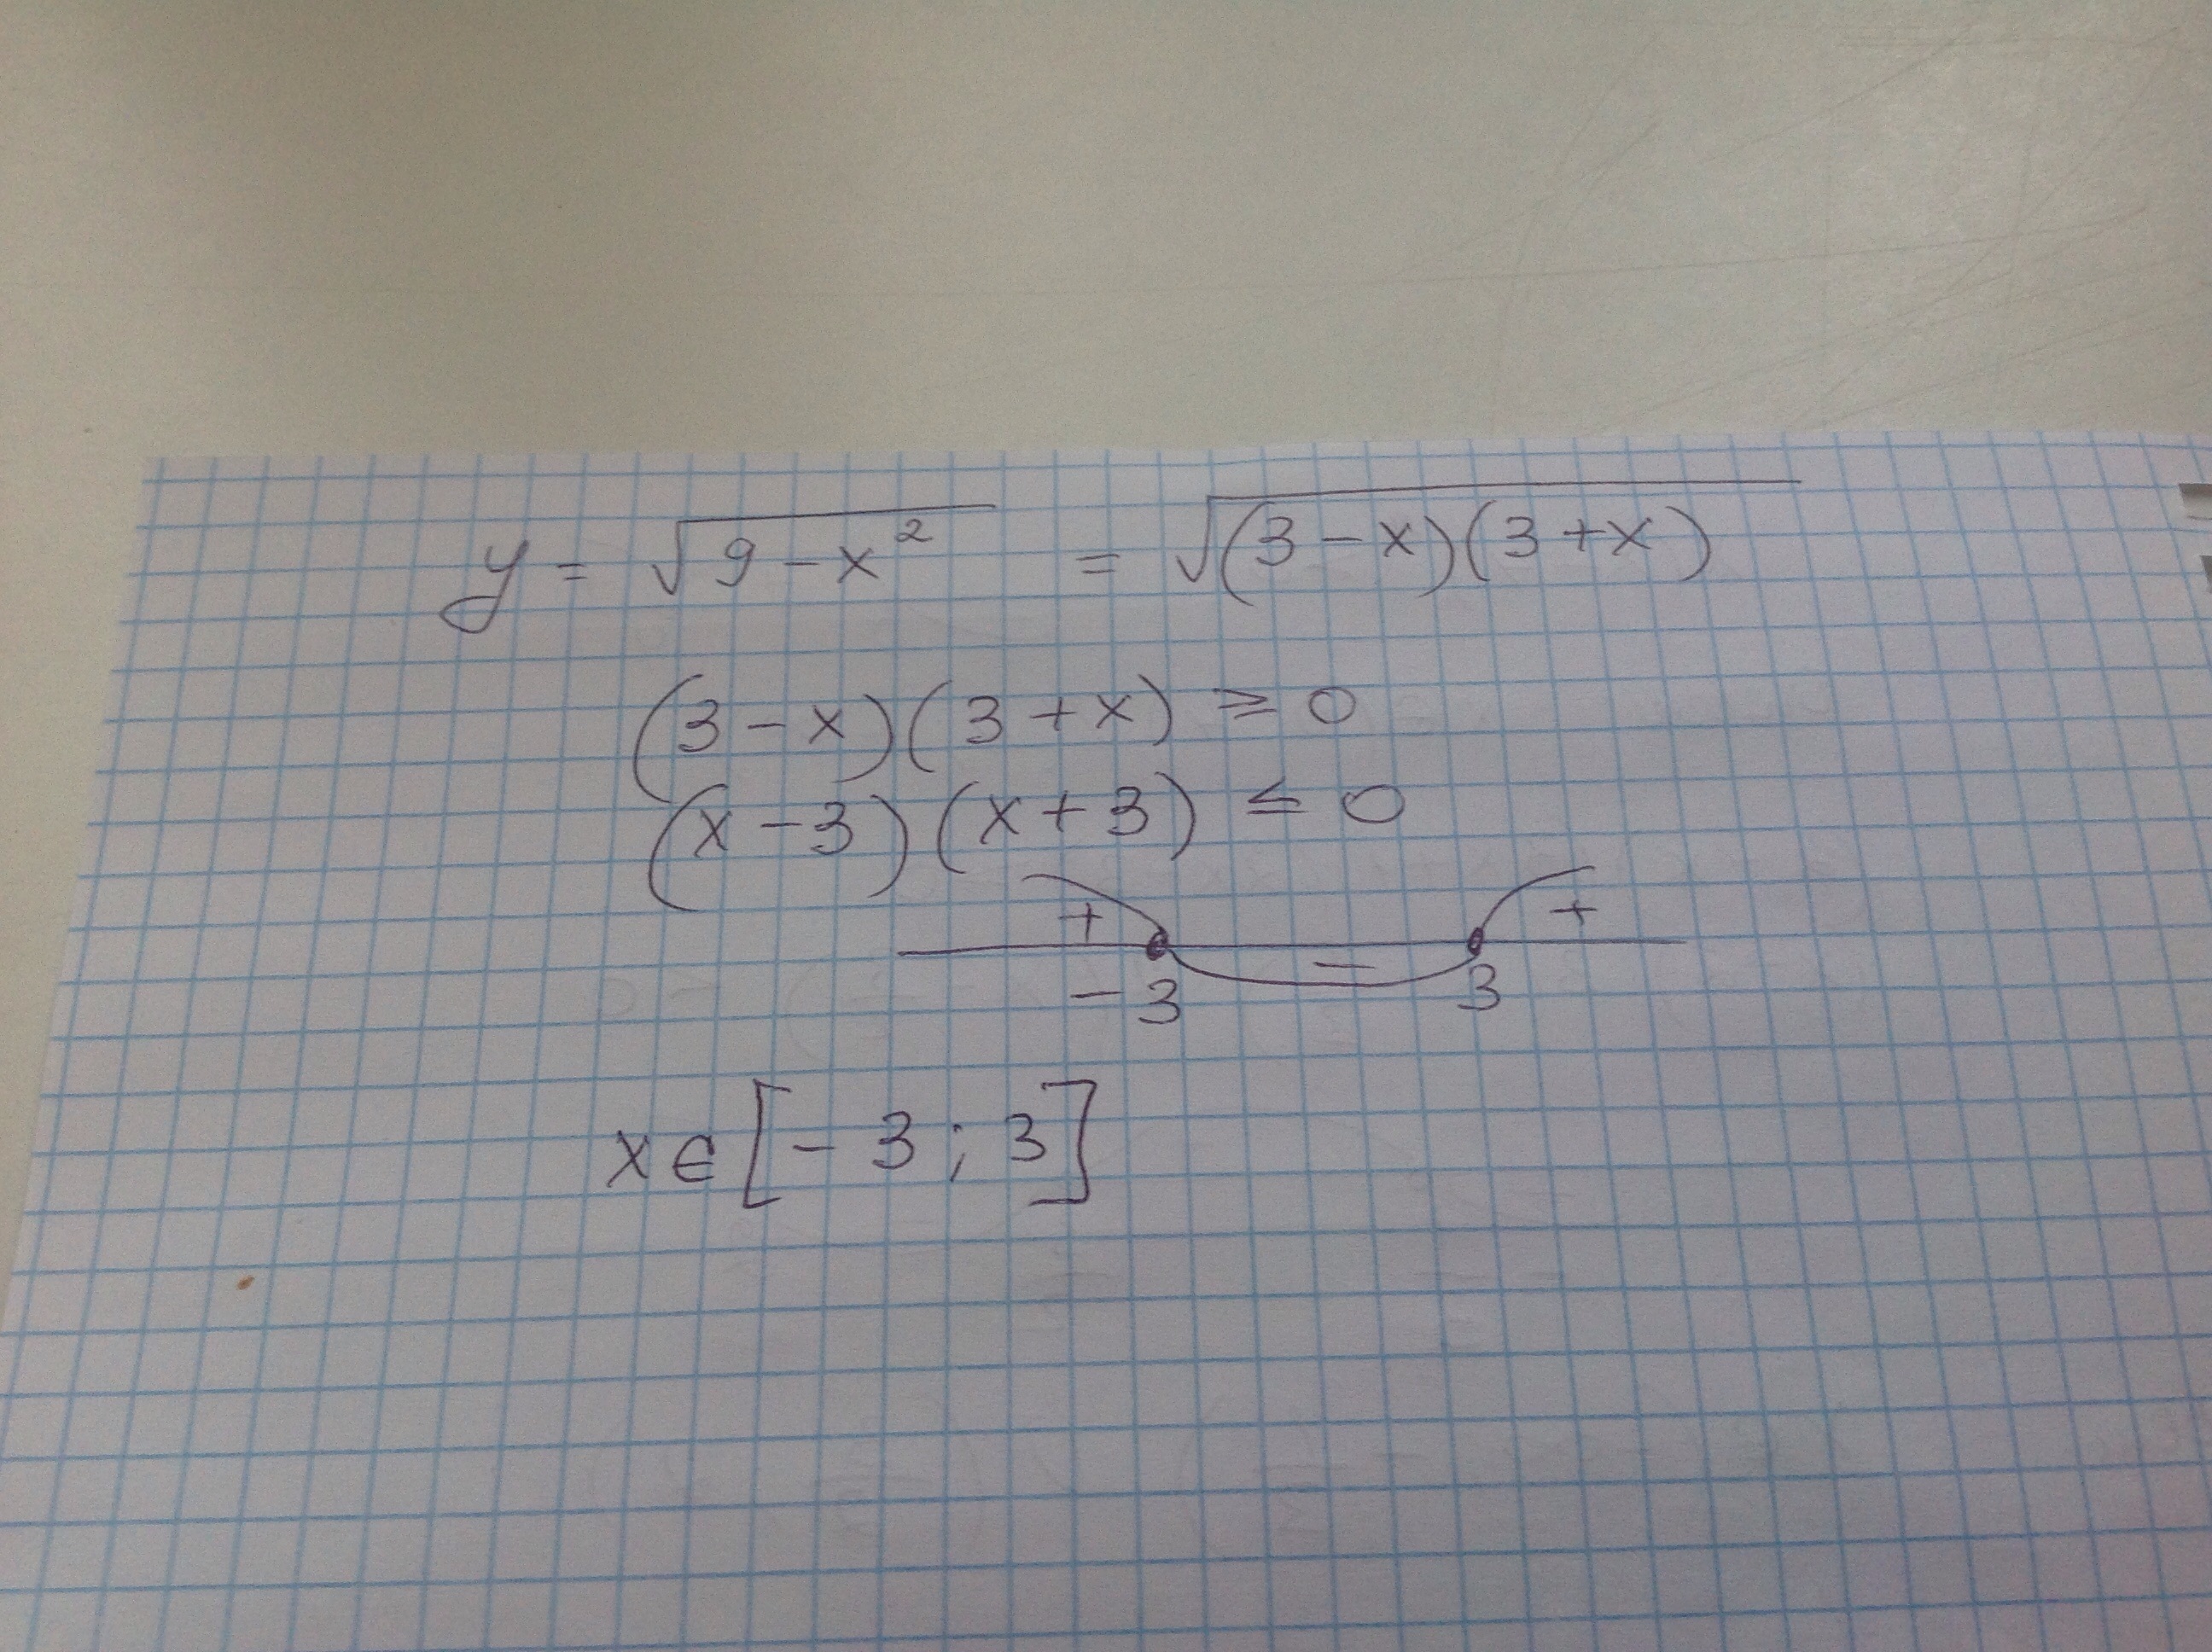 y = √(9 - x²) = √((3 - x)(3 + x))
(3 - x)(3 + x) ≥ 0
(x - 3)(x + 3) ≤ 0
+ - +
-3 3
x ∈ [-3; 3]